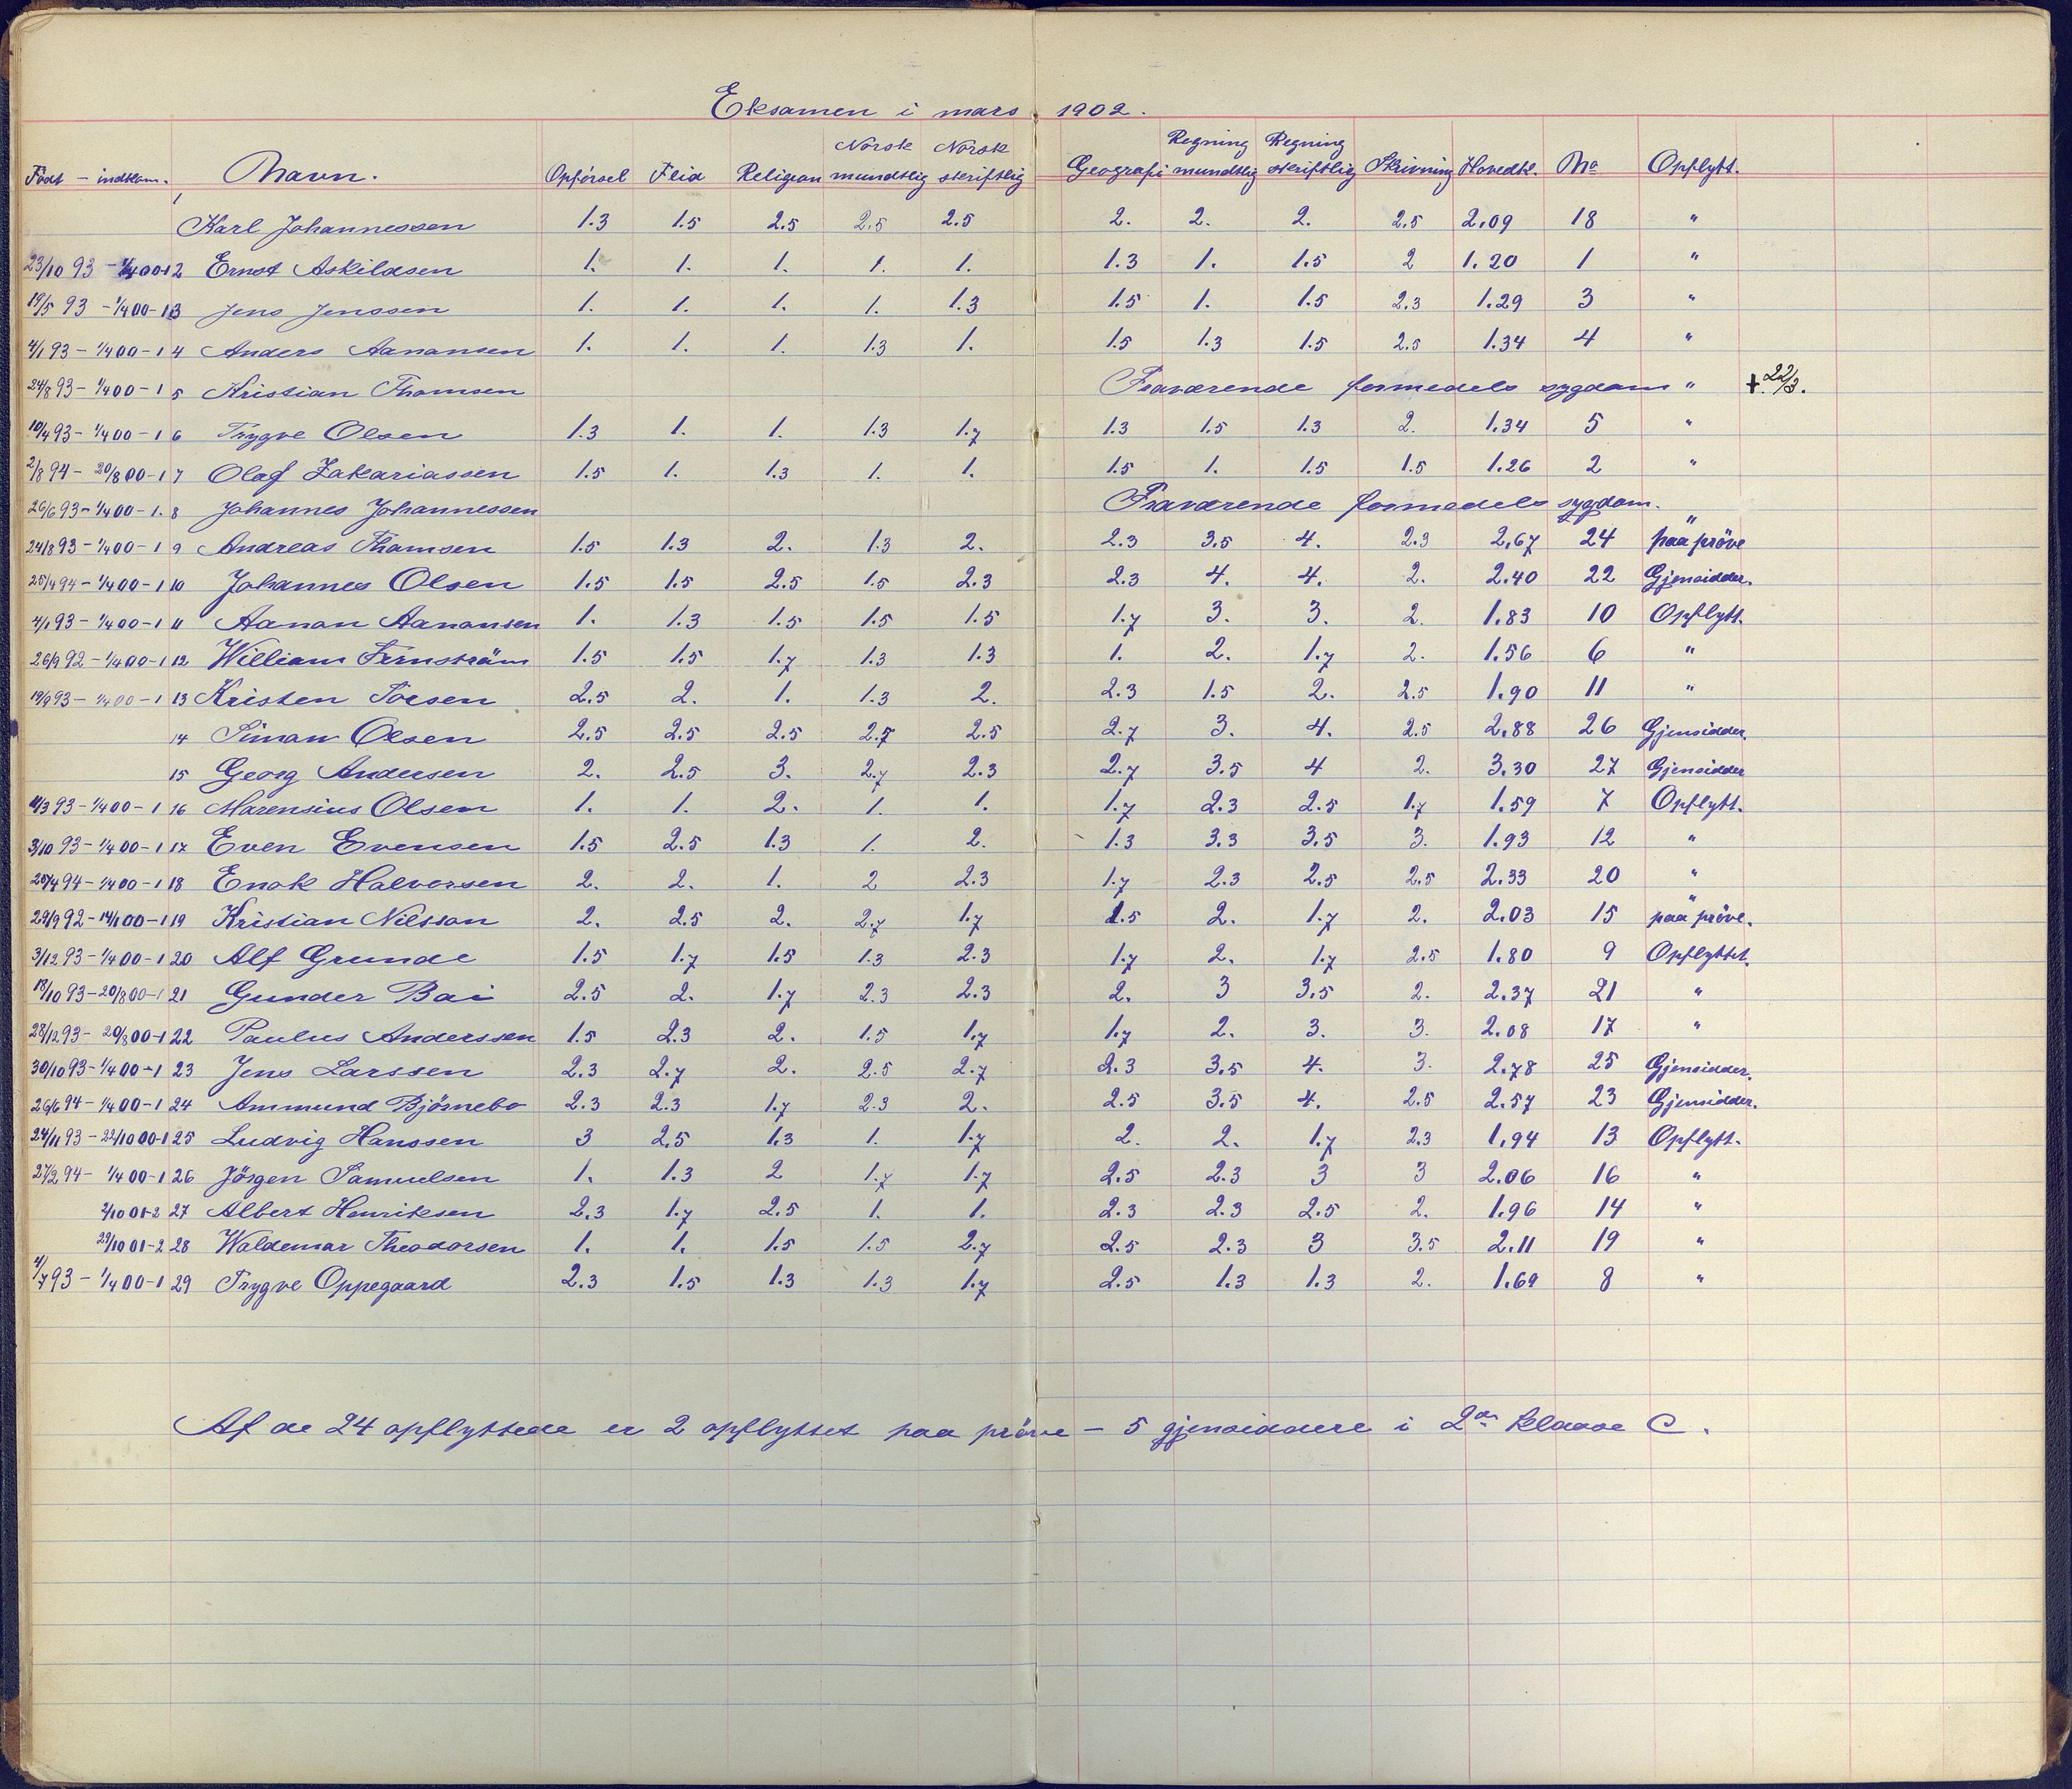 Eksamen i mars 1902.
Født - indkom. Navn. Opførsel Flid Religion Norsk mundtlig Norsk skriftlig Geografi Regning mundtlig Regning skriftlig Skrivning Hovedk. No Opflytt.
1 Karl Johannessen 1.3 1.5 2.5 2.5 2.5 2. 2. 2. 2.5 2.09 18 "
23/10 93 - 1/4 00-1 2 Ernst Askildsen 1. 1. 1. 1. 1. 1.3 1. 1.5 2 1.20 1 "
19/5 93 - 1/4 00-1 3 Jens Jenssen 1. 1. 1. 1. 1.3 1.5 1. 1.5 2.3 1.29 3 "
4/1 93 - 1/4 00-1 4 Anders Aanansen 1. 1. 1. 1.3 1. 1.5 1.3 1.5 2.5 1.34 4 "
24/8 93 - 1/4 00-1 5 Kristian Thomsen Fraværende formedels sygdom " +22/3.
10/4 93 - 1/4 00-1 6 Trygve Olsen 1.3 1. 1. 1.3 1.7 1.3 1.5 1.3 2. 1.34 5 "
2/8 94 - 20/8 00-1 7 Olaf Zakariassen 1.5 1. 1.3 1. 1. 1.5 1. 1.5 1.5 1.26 2 "
26/6 93 - 1/4 00-1. 8 Johannes Johannessen Fraværende formedels sygdom. "
24/8 93 - 1/4 00-1 9 Andreas Thomsen 1.5 1.3 2. 1.3 2. 2.3 3.5 4. 2.3 2.67 24 paa pröve
25/4 94 - 1/4 00-1 10 Johannes Olsen 1.5 1.5 2.5 1.5 2.3 2.3 4. 4. 2. 2.40 22 Gjensidder.
4/1 93 - 1/4 00-1 11 Aanon Aanonsen 1. 1.3 1.5 1.5 1.5 1.7 3. 3. 2. 1.83 10 Opflytt.
26/9 92 - 1/4 00-1 12 William Fernström 1.5 1.5 1.7 1.3 1.3 1. 2. 1.7 2. 1.56 6 "
19/9 93 - 1/4 00-1 13 Kristen Torsen 2.5 2. 1. 1.3 2. 2.3 1.5 2. 2.5 1.90 11 "
14 Simon Olsen 2.5 2.5 2.5 2.7 2.5 2.7 3. 4. 2.5 2.88 26 Gjensidder.
15 Georg Andersen 2. 2.5 3. 2.7 2.3 2.7 3.5 4 2. 3.30 27 Gjensidder
11/3 93 - 1/4 00-1 16 Marensius Olsen 1. 1. 2. 1. 1. 1.7 2.3 2.5 1.7 1.59 7 Opflytt.
3/10 93 - 1/4 00-1 17 Even Evensen 1.5 2.5 1.3 1. 2. 1.3 3.3 3.5 3. 1.93 12 "
20/4 94 - 1/4 00-1 18 Enok Halvorsen 2. 2. 1. 2 2.3 1.7 2.3 2.5 2.5 2.33 20 "
29/9 92 - 14/1 00-1 19 Kristian Nilsson 2. 2.5 2. 2.7 1.7 1.5 2. 1.7 2. 2.03 15 " paa pröve.
3/12 93 - 1/4 00-1 20 Alf Grunde 1.5 1.7 1.5 1.3 2.3 1.7 2. 1.7 2.5 1.80 9 Opflyttet.
18/10 93 - 20/8 00-1 21 Gunder Bai 2.5 2. 1.7 2.3 2.3 2. 3 3.5 2. 2.37 21 "
28/12 93 - 20/8 00-1 22 Paulus Anderssen 1.5 2.3 2. 1.5 1.7 1.7 2. 3. 3. 2.08 17 "
30/10 93 - 1/4 00-1 23 Jens Larssen 2.3 2.7 2. 2.5 2.7 2.3 3.5 4. 3. 2.78 25 Gjensidder.
26/6 94 - 1/4 00-1 24 Ammund Bjørnebo 2.3 2.3 1.7 2.3 2. 2.5 3.5 4. 2.5 2.57 23 Gjensidder.
24/11 93 - 22/10 00-1 25 Ludvig Hanssen 3 2.5 1.3 1. 1.7 2. 2. 1.7 2.3 1.94 13 Opflytt.
27/2 94 - 1/4 00-1 26 Jörgen Samuelsen 1. 1.3 2 1.7 1.7 2.5 2.3 3 3 2.06 16 "
2/10 01-2 27 Albert Henriksen 2.3 1.7 2.5 1. 1. 2.3 2.3 2.5 2. 1.96 14 "
29/10 01-2 28 Waldemar Theodorsen 1. 1. 1.5 1.5 2.7 2.5 2.3 3 3.5 2.11 19 "
4/7 93 - 1/4 00-1 29 Trygve Oppegaard 2.3 1.5 1.3 1.3 1.7 2.5 1.3 1.3 2. 1.69 8 "
Af de 24 opflyttede er 2 opflyttet paa pröve - 5 gjensiddere i 2den klasse C.